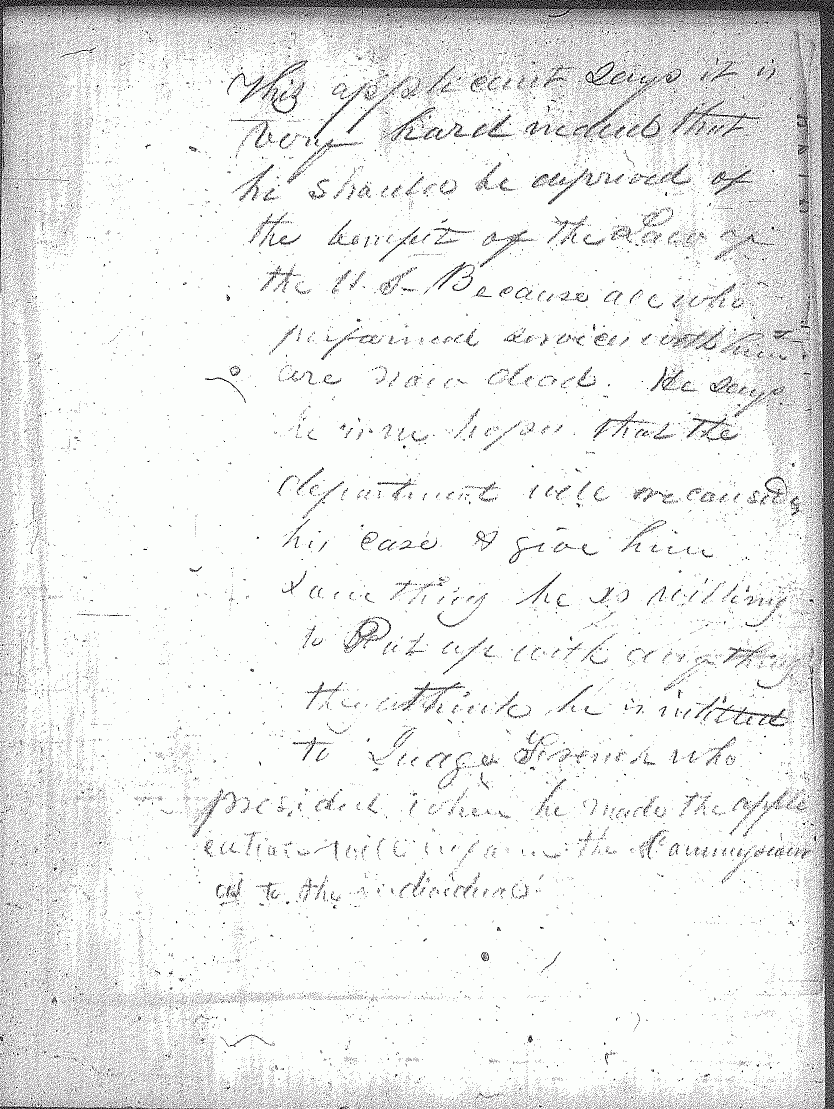 This applicant Says it is
very hard indeed that
he should be deprived of
the benefit of the Law of
the U.S- Because all who
performed service with him
are now dead. He Says
he hopes that the
department will reconsider
his case & give him
Some thing he is willing
to Put up with any thing
they think he is intitted
to Judge who
presided when he made the appli
cation will inform the Commissioner
as to the individual